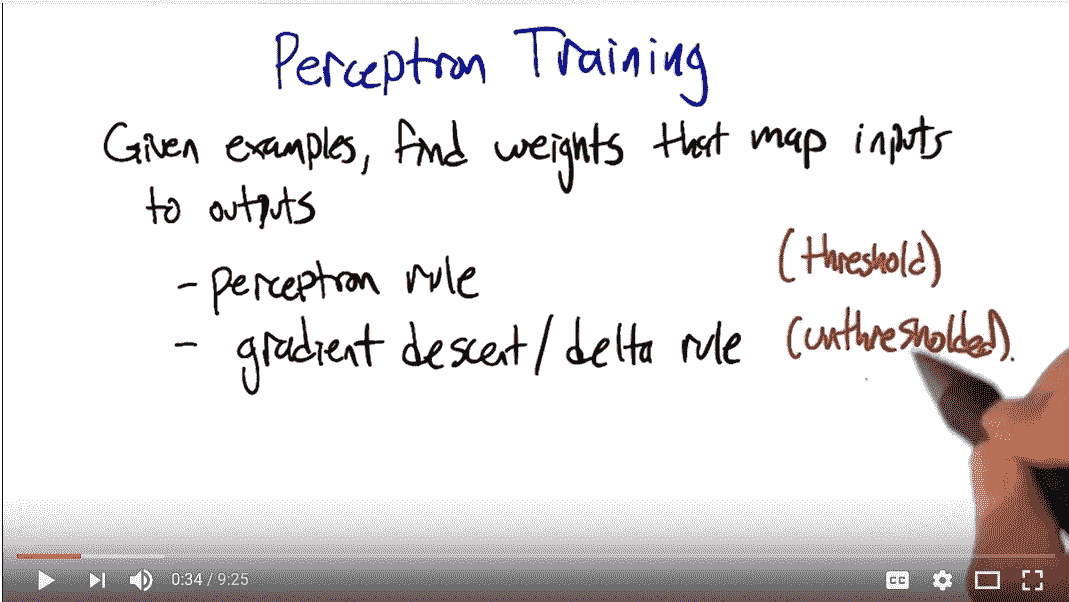 Perceptron Training
Given examples, find weights that map inputs
to outputs
- perceptron rule (threshold)
- gradient descent / delta rule (unthresholded).
0:34 / 9:25
CC